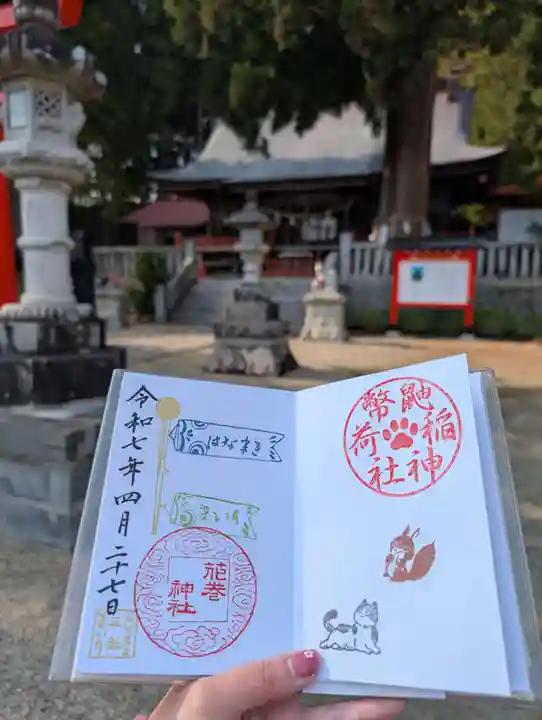 令和七年四月二十七日
はなまき
花巻
神社
鼬幣
稲荷
神社